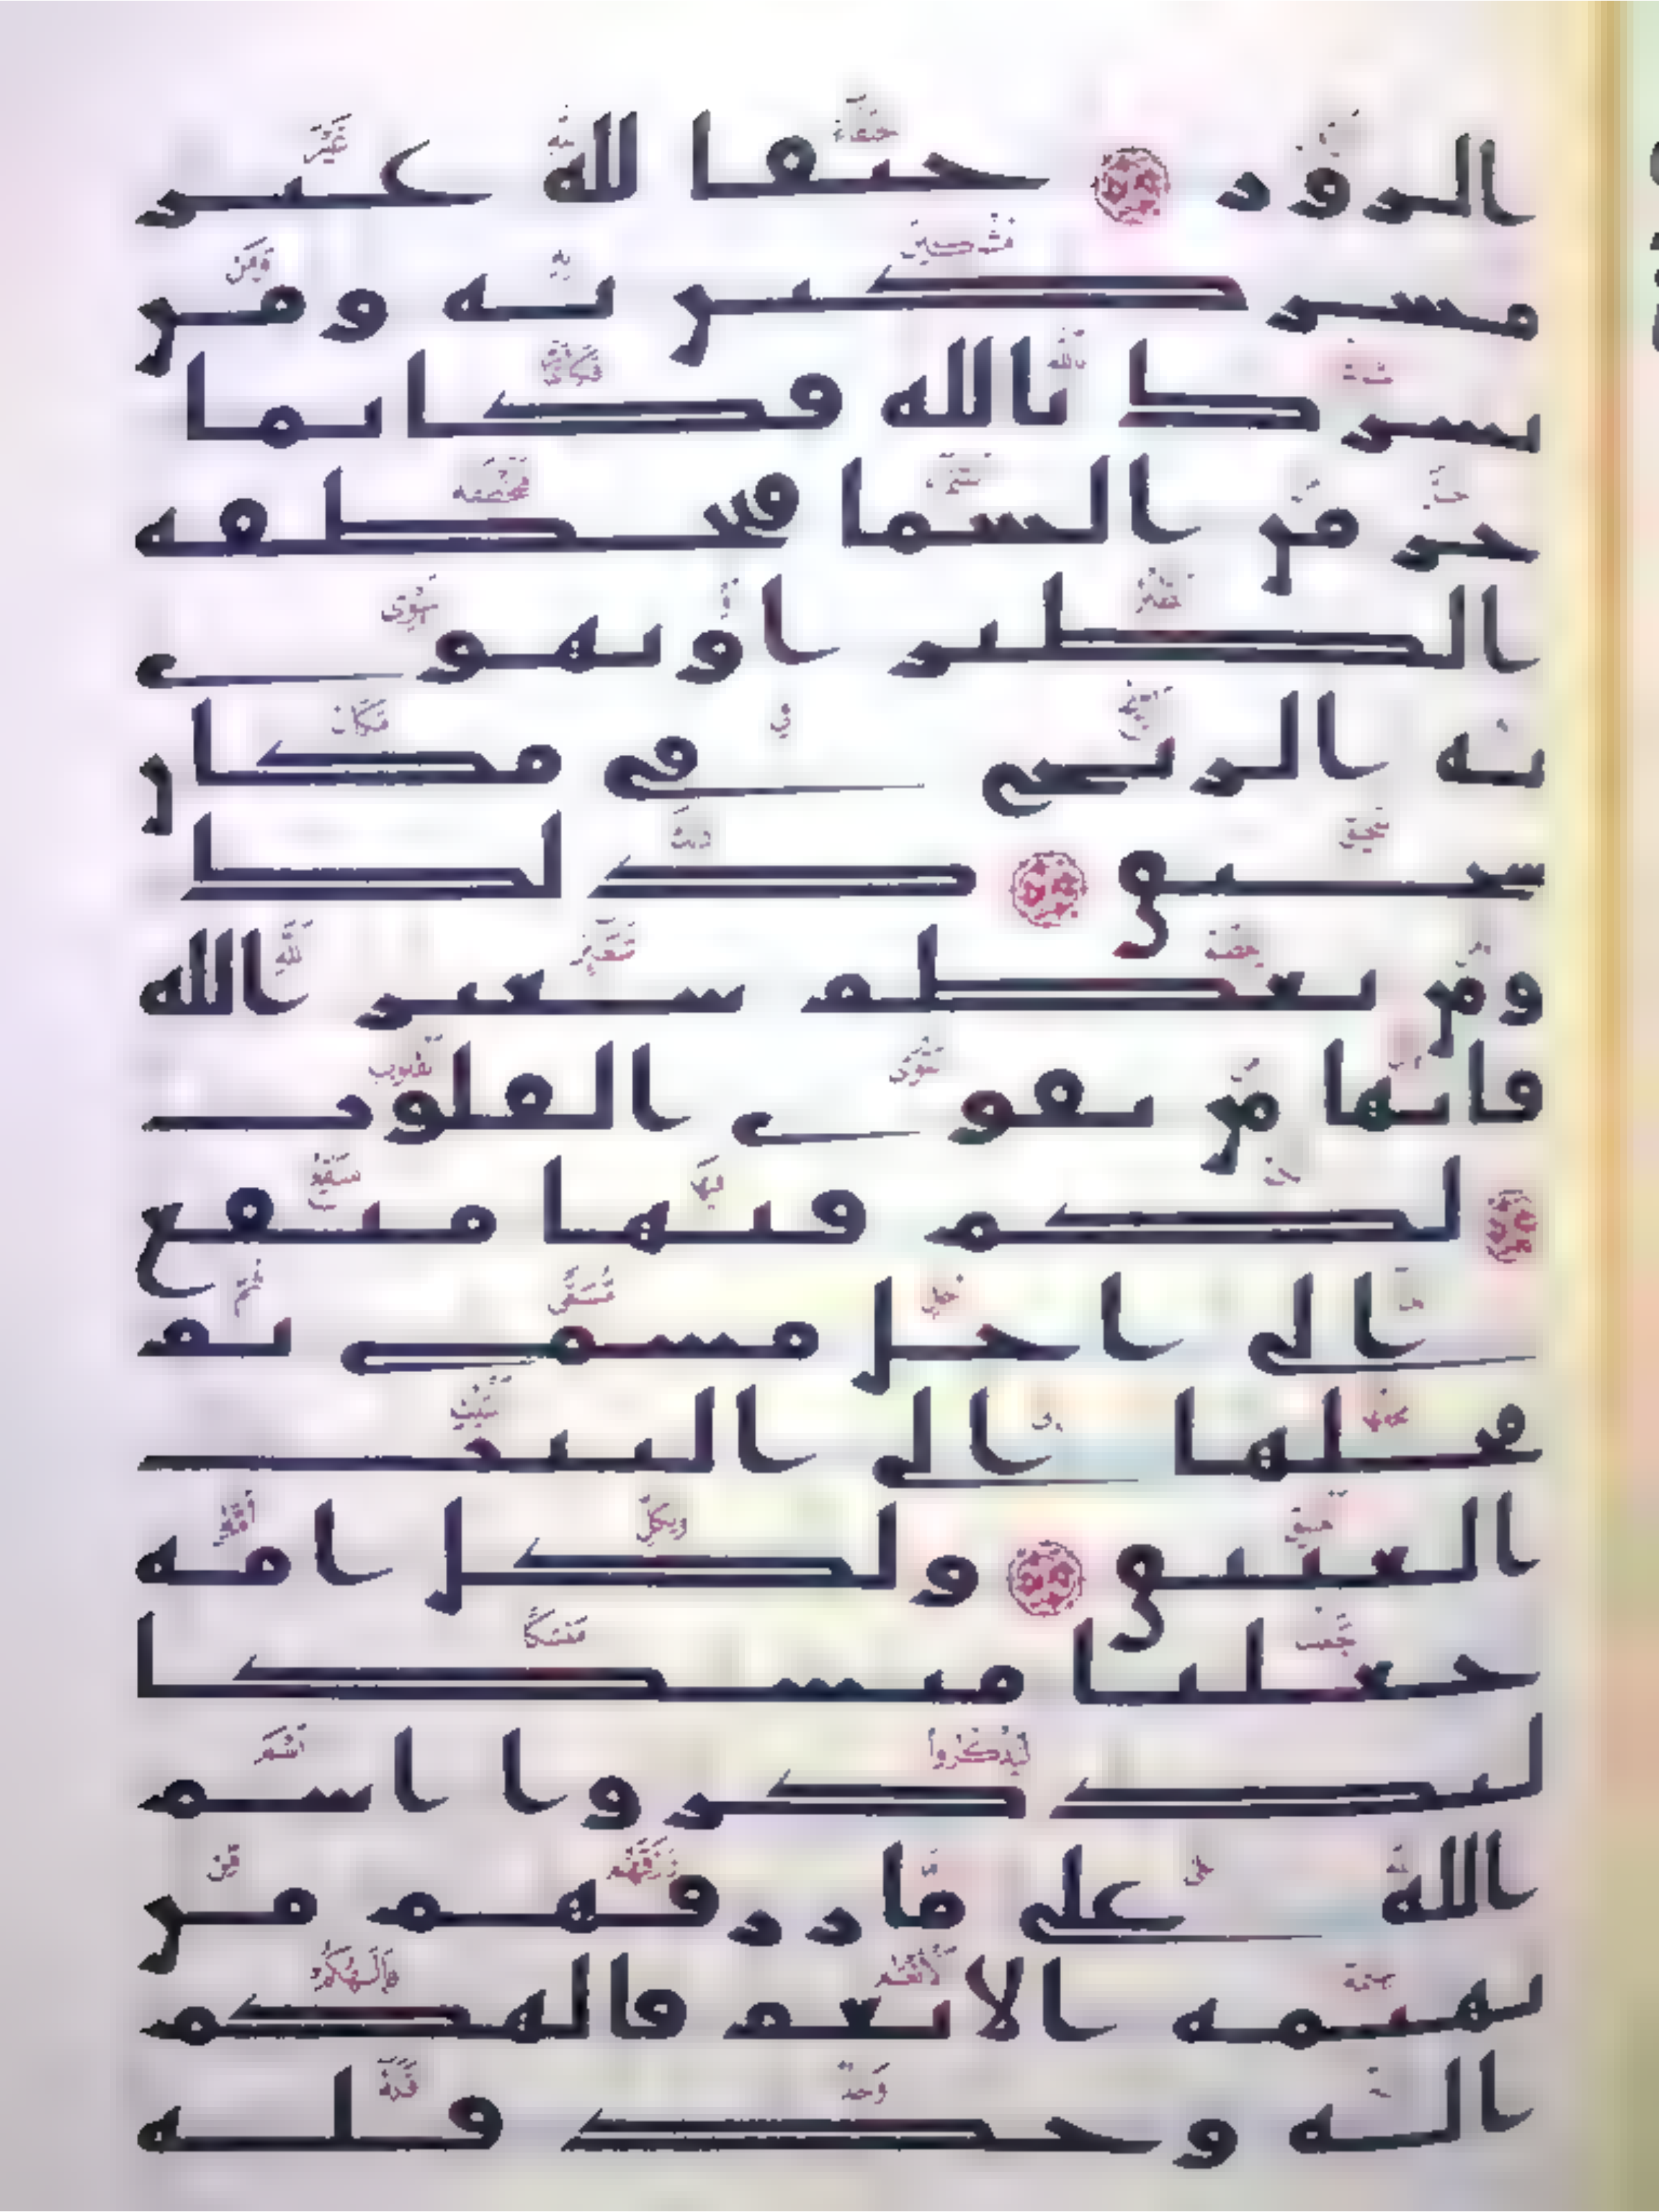 الزور حنفا لله غير
مشركين به ومن
يشرك بالله فكانما
خر من السما فتخطفه
الطير او تهوى
به الريح فى مكان
سحيق ذلك
ومن يعظم شعير الله
فانها من تقوى القلوب
لكم فيها منفع
الى اجل مسمى ثم
محلها الى البيت
العتيق ولكل امه
جعلنا منسكا
ليذكروا اسم
الله على ما رزقهم من
بهيمه الانعم فالهكم
اله وحد فله